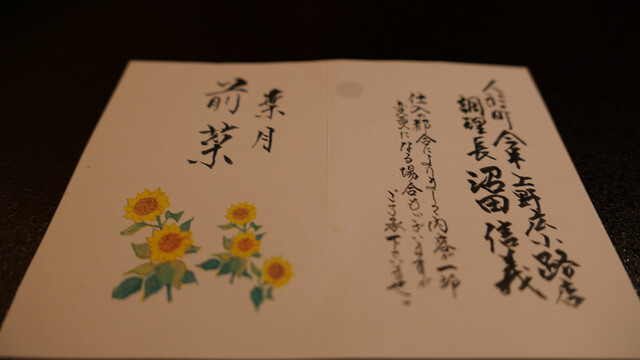 人形町 今半 上野広小路店
調理長 沼田信義
仕入の都合によりまして内容が一部
変更になる場合もございますが
ご了承下さいませ。
葉月
前菜